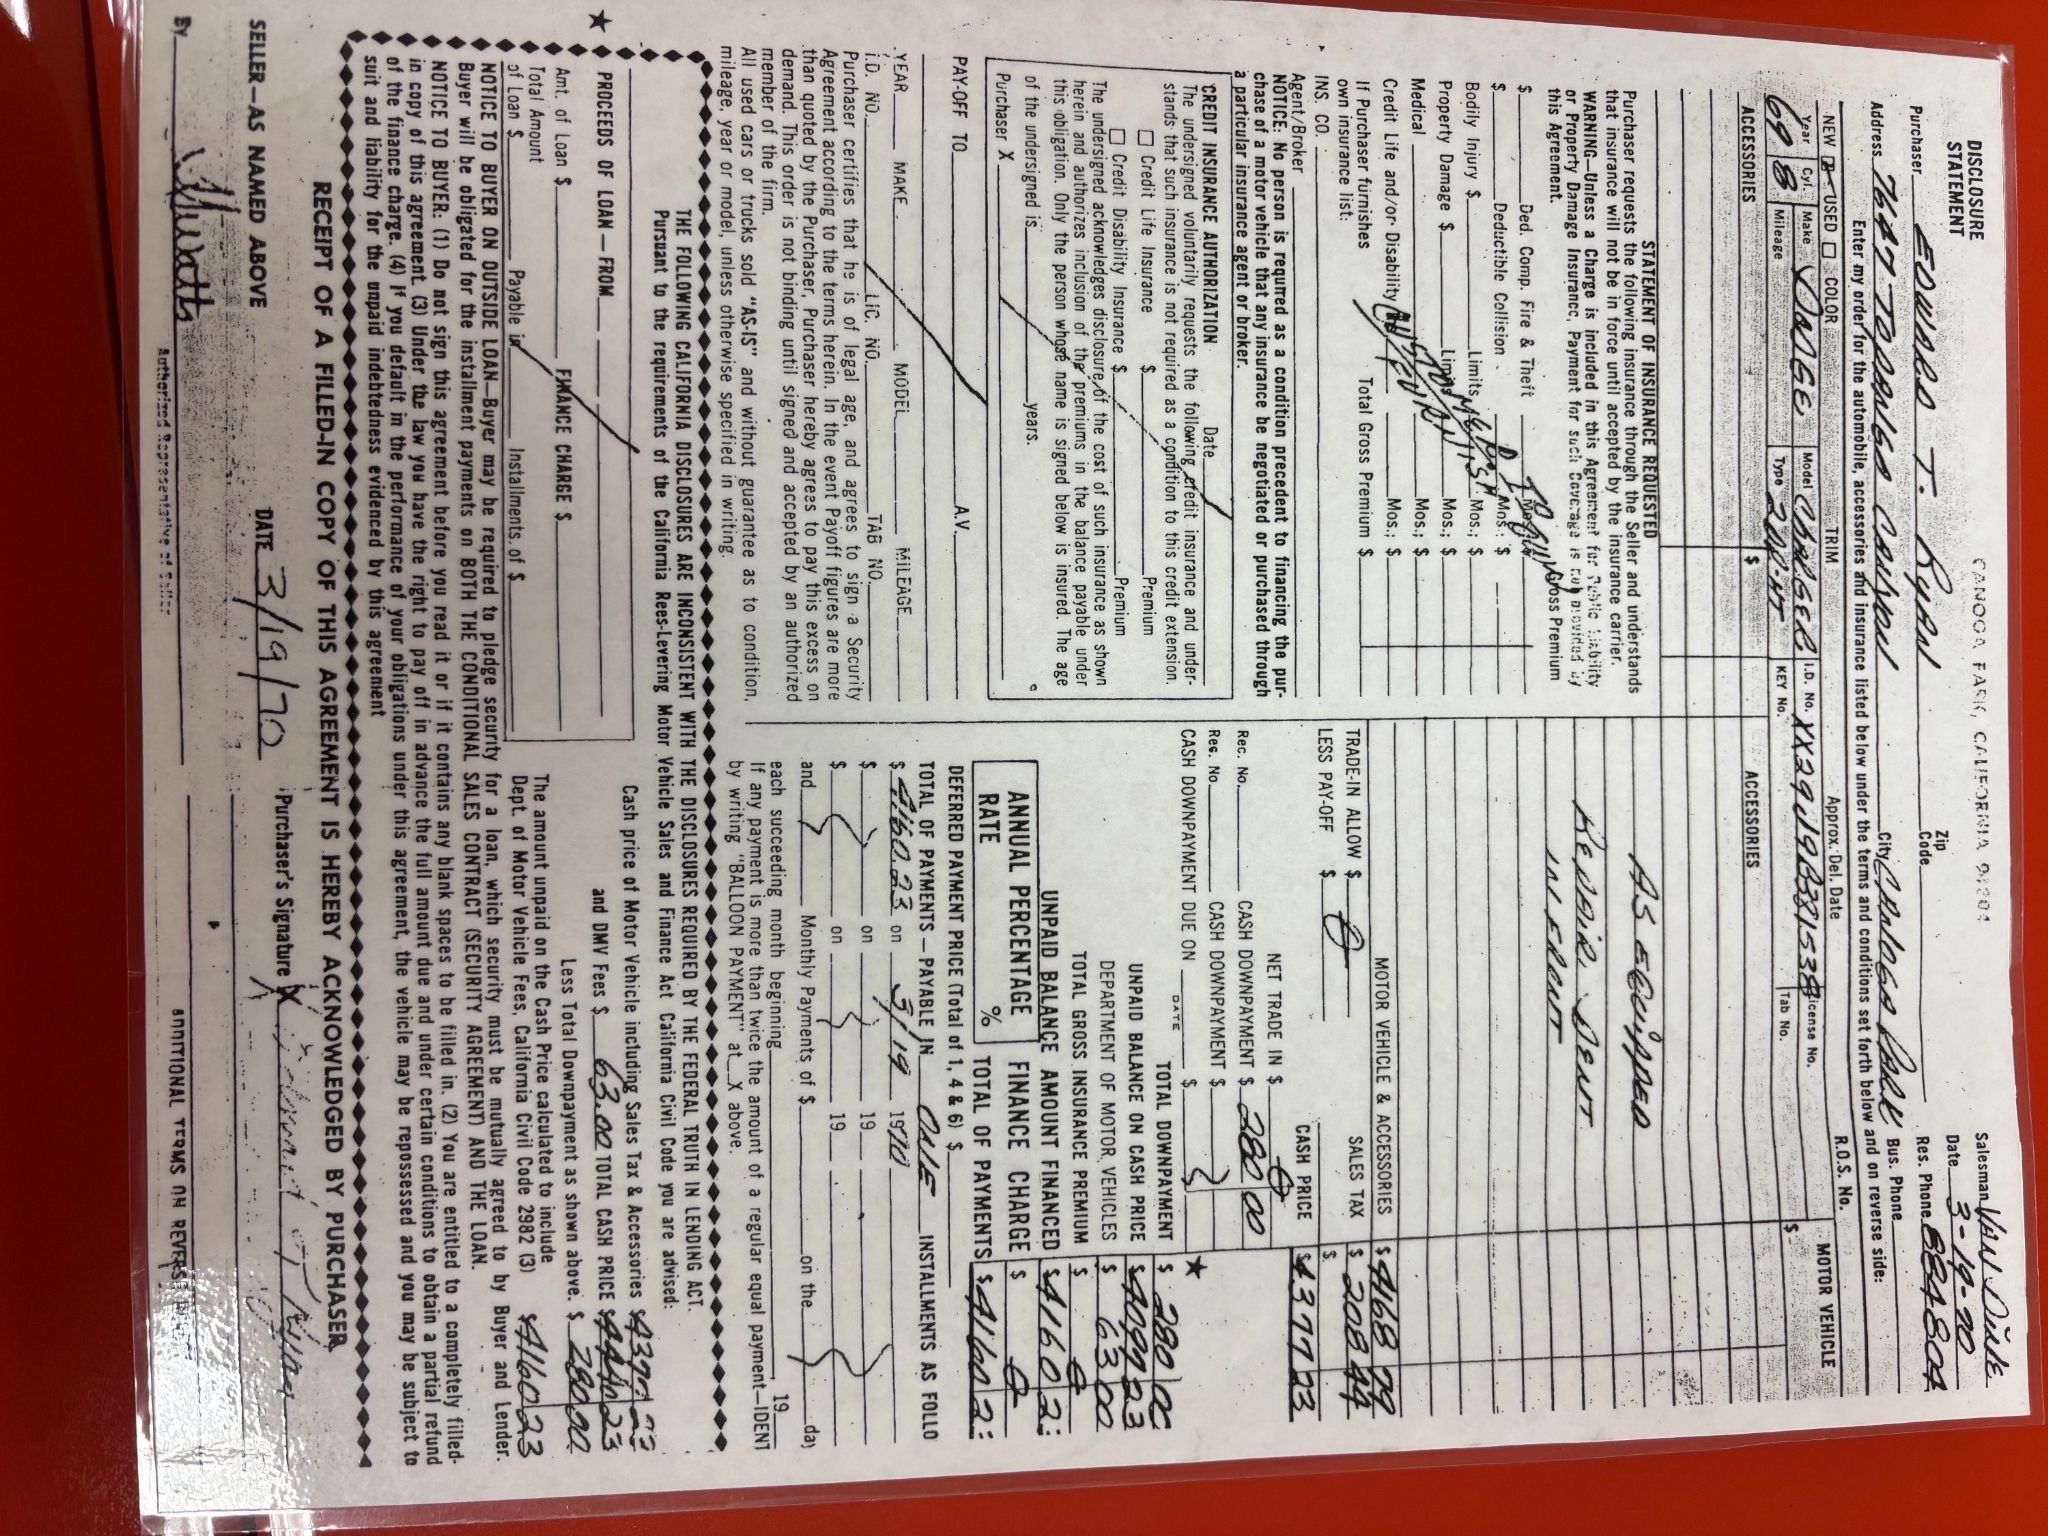 CANOGA PARK, CALIFORNIA 91304
DISCLOSURE STATEMENT
Salesman Van Dine
Date 3-19-70
Purchaser EDWARD T. RYAN Zip Code Res. Phone 884804
Address 7667 TOPANGA CANYON City CANOGA PARK Bus. Phone
Enter my order for the automobile, accessories and insurance listed below under the terms and conditions set forth below and on reverse side:
NEW USED ☐ COLOR TRIM Approx. Del. Date R.O.S. No. MOTOR VEHICLE
Year 69 Cyl. 8 Make DODGE Model CHARGER I.D. No. XX29J9B381538 License No.
Mileage Type 2DR HT KEY No. Tab No. $
ACCESSORIES $ ACCESSORIES
AS EQUIPPED
REPAIR DENT
IN FRONT
STATEMENT OF INSURANCE REQUESTED
Purchaser requests the following insurance through the Seller and understands
that insurance will not be in force until accepted by the insurance carrier.
WARNING—Unless a Charge is included in this Agreement for Public Liability
or Property Damage Insurance, Payment for such Coverage is not provided by
this Agreement. Gross Premium
$ Ded. Comp. Fire & Theft
$ Deductible Collision Mos.: $
Bodily Injury $ Limits Mos.: $
Property Damage $ Limits Mos.: $
Medical Mos.: $
Credit Life and/or Disability Mos.: $
If Purchaser furnishes Total Gross Premium $
own insurance list:
INS. CO.
Agent/Broker
NOTICE: No person is required as a condition precedent to financing the pur-
chase of a motor vehicle that any insurance be negotiated or purchased through
a particular insurance agent or broker.
CREDIT INSURANCE AUTHORIZATION Date
The undersigned voluntarily requests the following credit insurance and under-
stands that such insurance is not required as a condition to this credit extension.
☐ Credit Life Insurance $ Premium
☐ Credit Disability Insurance $ Premium
The undersigned acknowledges disclosure of the cost of such insurance as shown
herein and authorizes inclusion of the premiums in the balance payable under
this obligation. Only the person whose name is signed below is insured. The age
of the undersigned is years.
Purchaser X
PAY-OFF TO A.V.
YEAR MAKE MODEL MILEAGE
I.D. NO. LIC. NO. TAB NO.
Purchaser certifies that he is of legal age, and agrees to sign a Security
Agreement according to the terms herein. In the event Payoff figures are more
than quoted by the Purchaser, Purchaser hereby agrees to pay this excess on
demand. This order is not binding until signed and accepted by an authorized
member of the firm.
All used cars or trucks sold "AS-IS" and without guarantee as to condition,
mileage, year or model, unless otherwise specified in writing.
MOTOR VEHICLE & ACCESSORIES $ 4168 79
SALES TAX $ 208 44
$
TRADE-IN ALLOW $
LESS PAY-OFF $ 0 CASH PRICE $ 4377 23
NET TRADE IN $ 0
Rec. No. CASH DOWNPAYMENT $ 280 00
Rec. No. CASH DOWNPAYMENT $
CASH DOWNPAYMENT DUE ON DATE $
TOTAL DOWNPAYMENT $ 280 00
UNPAID BALANCE ON CASH PRICE $ 4097 23
DEPARTMENT OF MOTOR VEHICLES $ 63 00
TOTAL GROSS INSURANCE PREMIUM $ 0
UNPAID BALANCE AMOUNT FINANCED $ 4160 2
ANNUAL PERCENTAGE RATE % FINANCE CHARGE $ 0
TOTAL OF PAYMENTS $ 4160 2
DEFERRED PAYMENT PRICE (Total of 1, 4 & 6) $
TOTAL OF PAYMENTS—PAYABLE IN ONE INSTALLMENTS AS FOLLO
$ 4160.23 on 3/19 1970
$ on 19
$ on 19
and Monthly Payments of $ on the da
each succeeding month beginning 19
If any payment is more than twice the amount of a regular equal payment—IDENT
by writing "BALLOON PAYMENT" at X above.
THE FOLLOWING CALIFORNIA DISCLOSURES ARE INCONSISTENT WITH THE DISCLOSURES REQUIRED BY THE FEDERAL TRUTH IN LENDING ACT.
Pursuant to the requirements of the California Rees-Levering Motor Vehicle Sales and Finance Act California Civil Code you are advised:
PROCEEDS OF LOAN—FROM
Amt. of Loan $ FINANCE CHARGE $
Total Amount
of Loan $ Payable in Installments of $
Cash price of Motor Vehicle including Sales Tax & Accessories $ 4377 23
and DMV Fees $ 63.00 TOTAL CASH PRICE $ 4440 23
Less Total Downpayment as shown above. $ 280 00
The amount unpaid on the Cash Price calculated to include
Dept. of Motor Vehicle Fees, California Civil Code 2982 (3) $ 4160 23
NOTICE TO BUYER ON OUTSIDE LOAN—Buyer may be required to pledge security for a loan, which security must be mutually agreed to by Buyer and Lender.
Buyer will be obligated for the installment payments on BOTH THE CONDITIONAL SALES CONTRACT (SECURITY AGREEMENT) AND THE LOAN.
NOTICE TO BUYER: (1) Do not sign this agreement before you read it or if it contains any blank spaces to be filled in. (2) You are entitled to a completely filled-
in copy of this agreement. (3) Under the law you have the right to pay off in advance the full amount due and under certain conditions to obtain a partial refund
of the finance charge. (4) If you default in the performance of your obligations under this agreement, the vehicle may be repossessed and you may be subject to
suit and liability for the unpaid indebtedness evidenced by this agreement
RECEIPT OF A FILLED-IN COPY OF THIS AGREEMENT IS HEREBY ACKNOWLEDGED BY PURCHASER
SELLER—AS NAMED ABOVE DATE 3/19/70 Purchaser's Signature X Edward T Ryan
By
Authorized Representative of Seller ADDITIONAL TERMS ON REVERSE